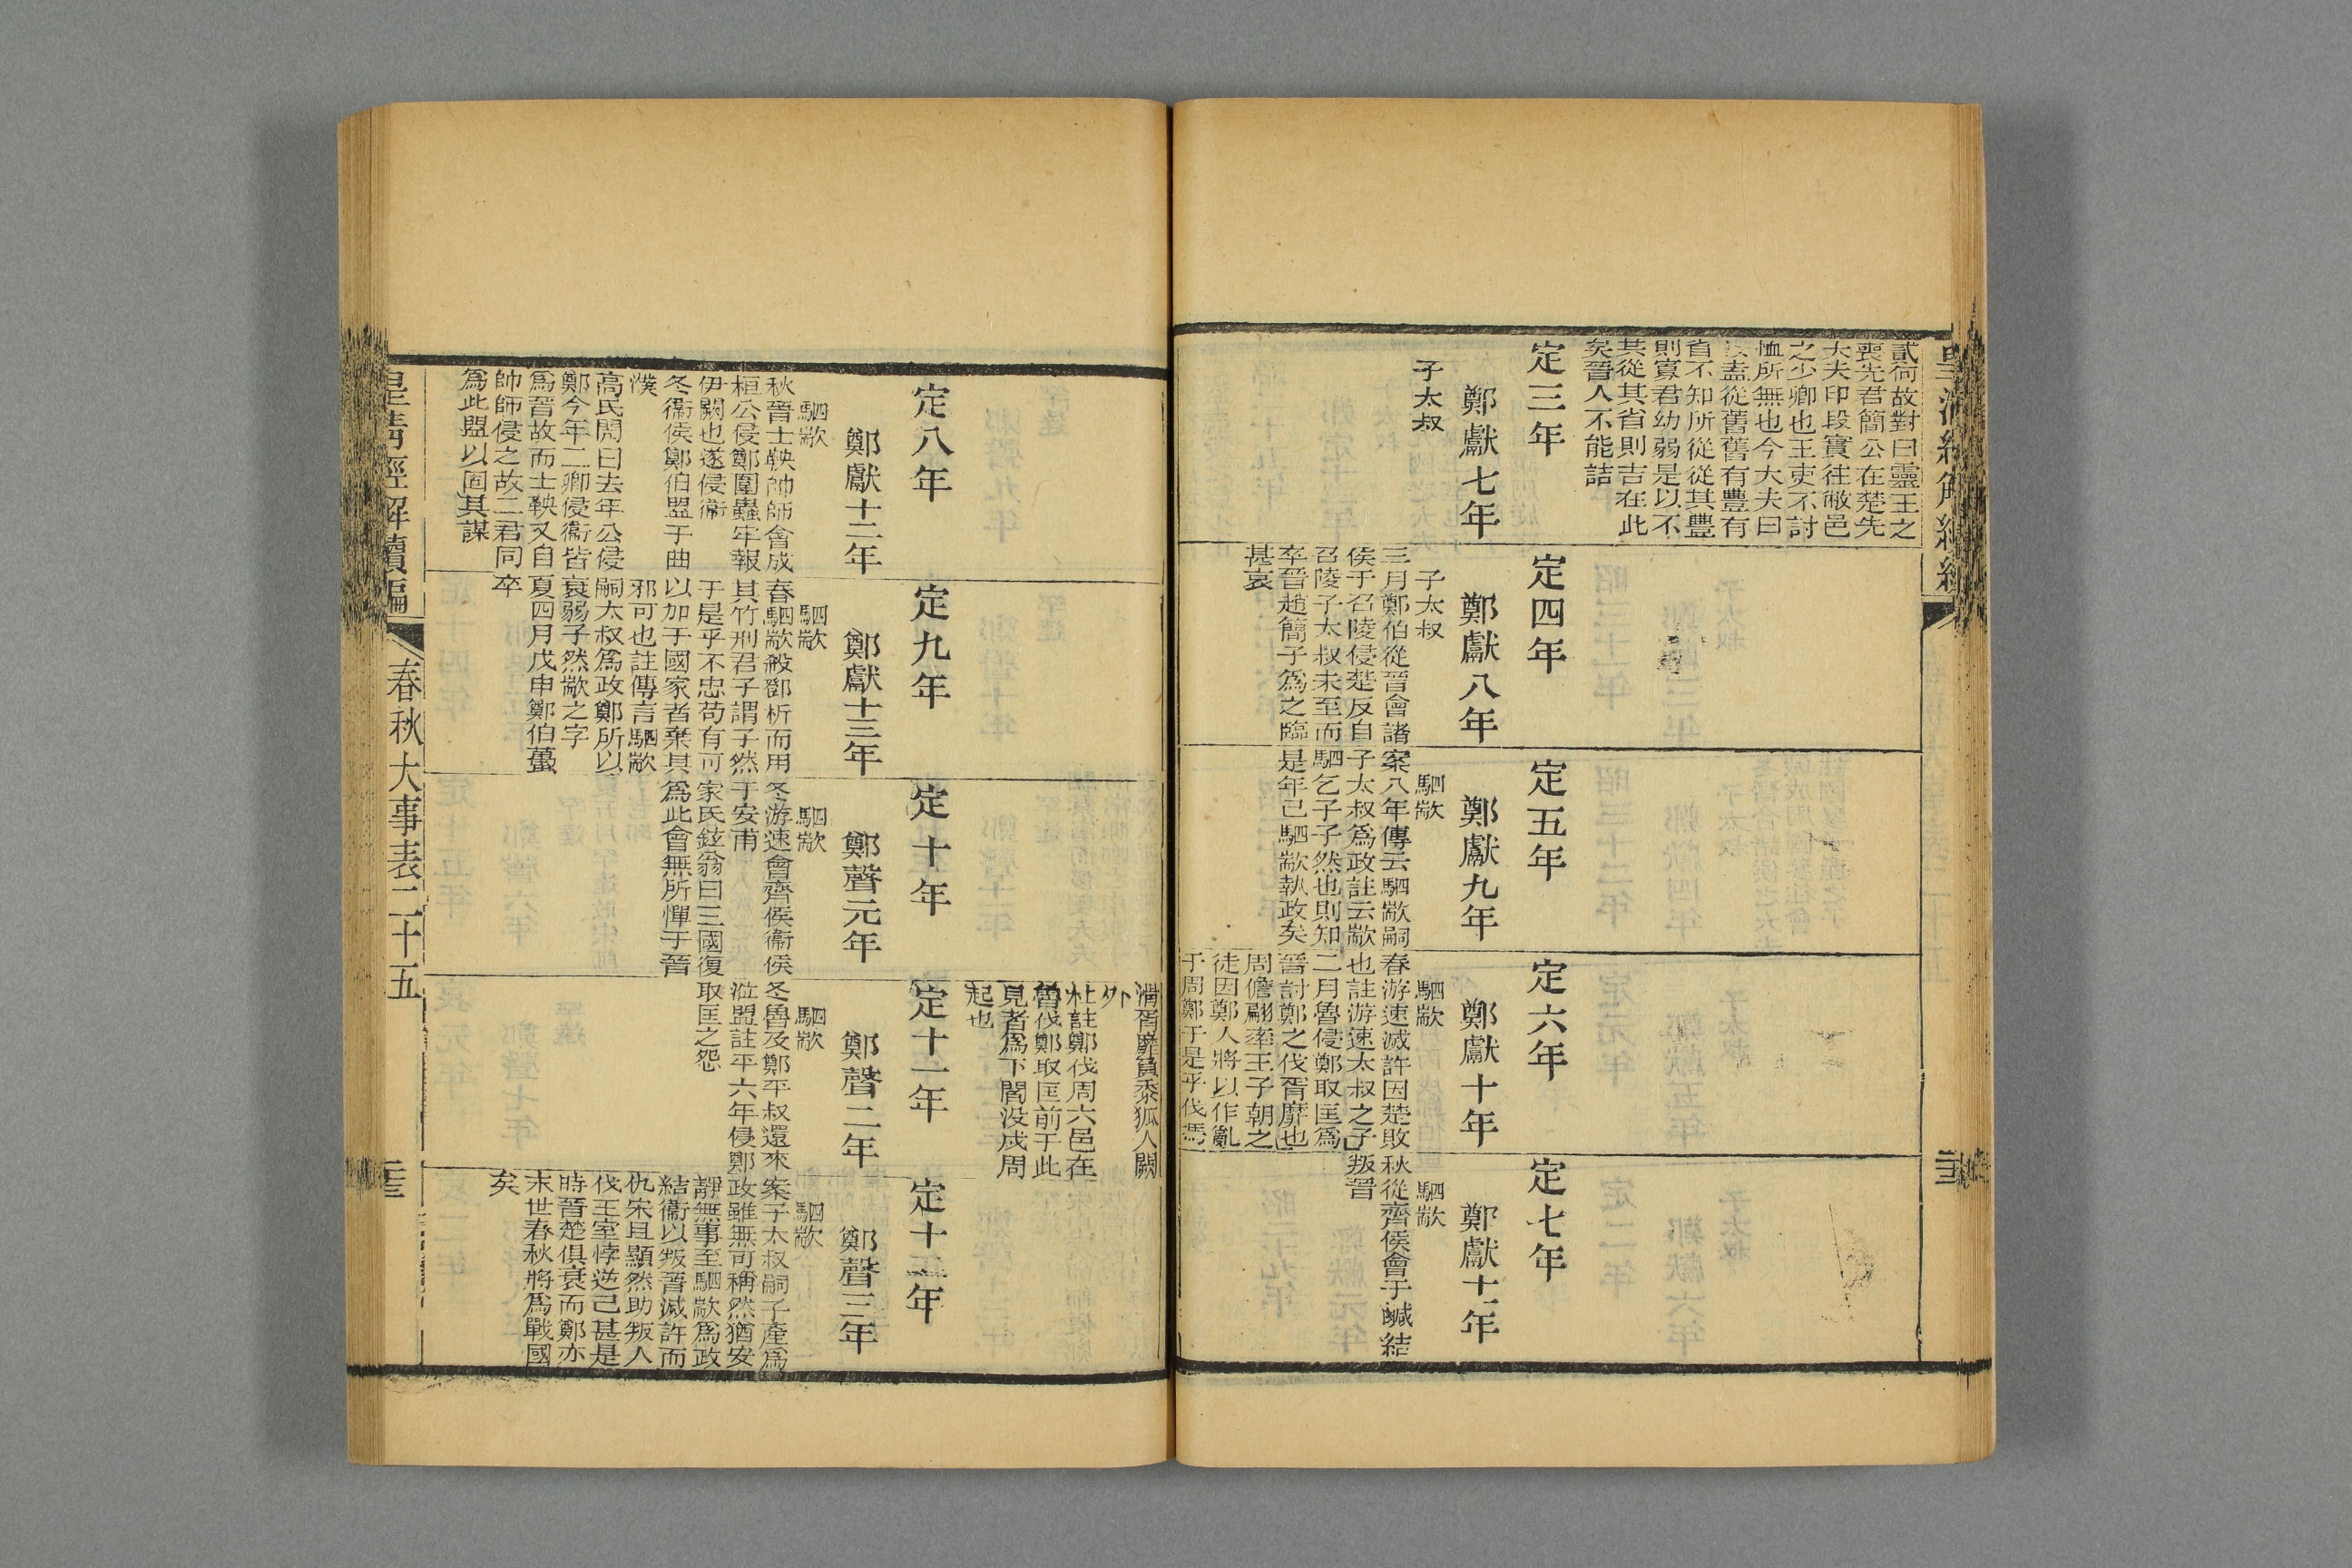 貳何故對曰靈王之
喪先君簡公在楚先
大夫印段實往敝邑
之少卿也王吏不討
恤所無也今大夫曰
盍從舊舊有豐有
省不知所從從其豐
則寡君幼弱是以不
共從其省則吉在此
矣晉人不能詰
定三年
鄭獻七年
子太叔
定四年
鄭獻八年
子太叔
三月鄭伯從晉會諸
侯于召陵侵楚反自
召陵子太叔未至而
卒晉趙簡子爲之臨
甚哀
定五年
鄭獻九年
駟歂
案八年傳云駟歂嗣
子太叔爲政註云歂
駟乞子子然也則知
是年已駟歂執政矣
定六年
鄭獻十年
駟歂
春游速滅許因楚敗
也註游速太叔之子
二月魯侵鄭取匡爲
晉討鄭之伐胥靡也
周儋翩率王子朝之
徒因鄭人將以作亂
于周鄭于是乎伐馮
定七年
鄭獻十一年
駟歂
秋從齊侯會于鹹結
叛晉
滑胥靡負黍狐人闕
外
杜註鄭伐周六邑在
魯伐鄭取匡前于此
見者爲下閻没戍周
起也
定八年
鄭獻十二年
駟歂
秋晉士鞅帥師會成
桓公侵鄭圍蟲牢報
伊闕也遂侵衞
冬衞侯鄭伯盟于曲
濮
高氏閌曰去年公侵
鄭今年二卿侵衞皆
爲晉故而士鞅又自
帥師侵之故二君同
爲此盟以固其謀
定九年
鄭獻十三年
駟歂
春駟歂殺鄧析而用
其竹刑君子謂子然
于是乎不忠苟有可
以加于國家者棄其
邪可也註傳言駟歂
嗣太叔爲政鄭所以
衰弱子然歂之字
夏四月戊申鄭伯蠆
卒
定十年
鄭聲元年
駟歂
冬游速會齊侯衞侯
于安甫
家氏鉉翁曰三國復
爲此會無所憚于晉
定十一年
鄭聲二年
駟歂
冬魯及鄭平叔還來
涖盟註平六年侵鄭
取匡之怨
定十二年
鄭聲三年
駟歂
案子太叔嗣子產爲
政雖無可稱然猶安
靜無事至駟歂爲政
結衞以叛晉滅許而
仇宋且顯然助叛人
伐王室悖逆已甚是
時晉楚俱衰而鄭亦
末世春秋將爲戰國
矣
皇清經解續編
春秋大事表二十五